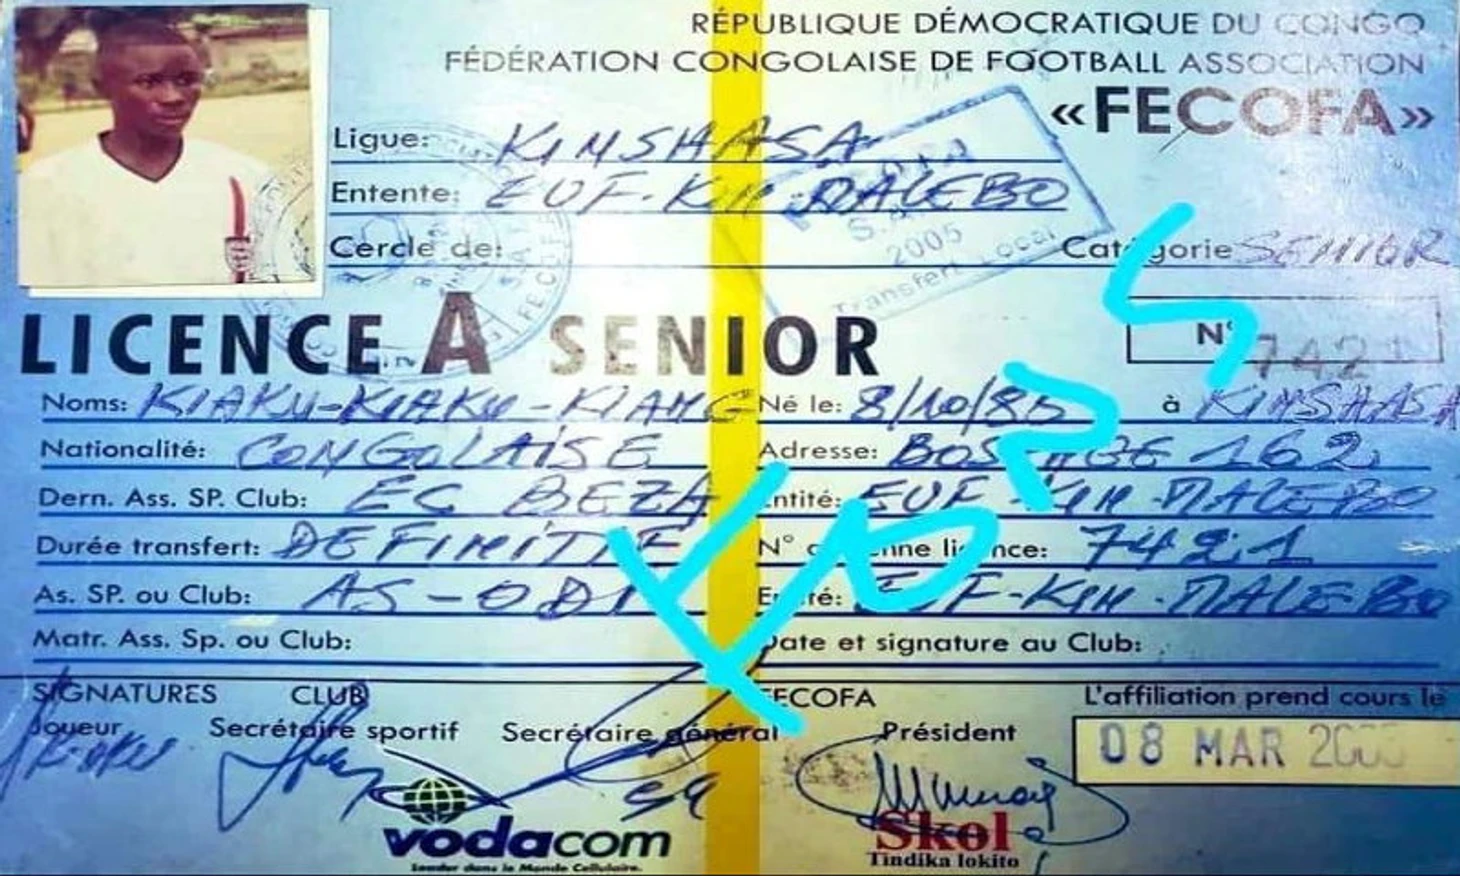 RÉPUBLIQUE DÉMOCRATIQUE DU CONGO
FÉDÉRATION CONGOLAISE DE FOOTBALL ASSOCIATION
«FECOFA»
Ligue: KINSHASA
Entente: EUF. KIN MALEBO
Cercle de:
Catégorie SENIOR
S.A.
2005
Transfert Local
LICENCE A SENIOR
N° 7421
Noms: KIAKU-KIAKU-KIANG Né le: 8/10/85 à KINSHASA
Nationalité: CONGOLAISE Adresse: 162
Dern. Ass. SP. Club: EC BEZA Entité: EUF-KIN-MALEBO
Durée transfert: DEFINITIF N° licence: 7421
As. SP. ou Club: AS-ODI Entité: EUF-KIN-MALEBO
Matr. Ass. Sp. ou Club: Date et signature au Club:
SIGNATURES CLUB FECOFA L'affiliation prend cours le
Joueur Secrétaire sportif Secrétaire général Président
08 MAR
vodacom
Leader dans le Monde Cellulaire.
Skol
Tindika lokito